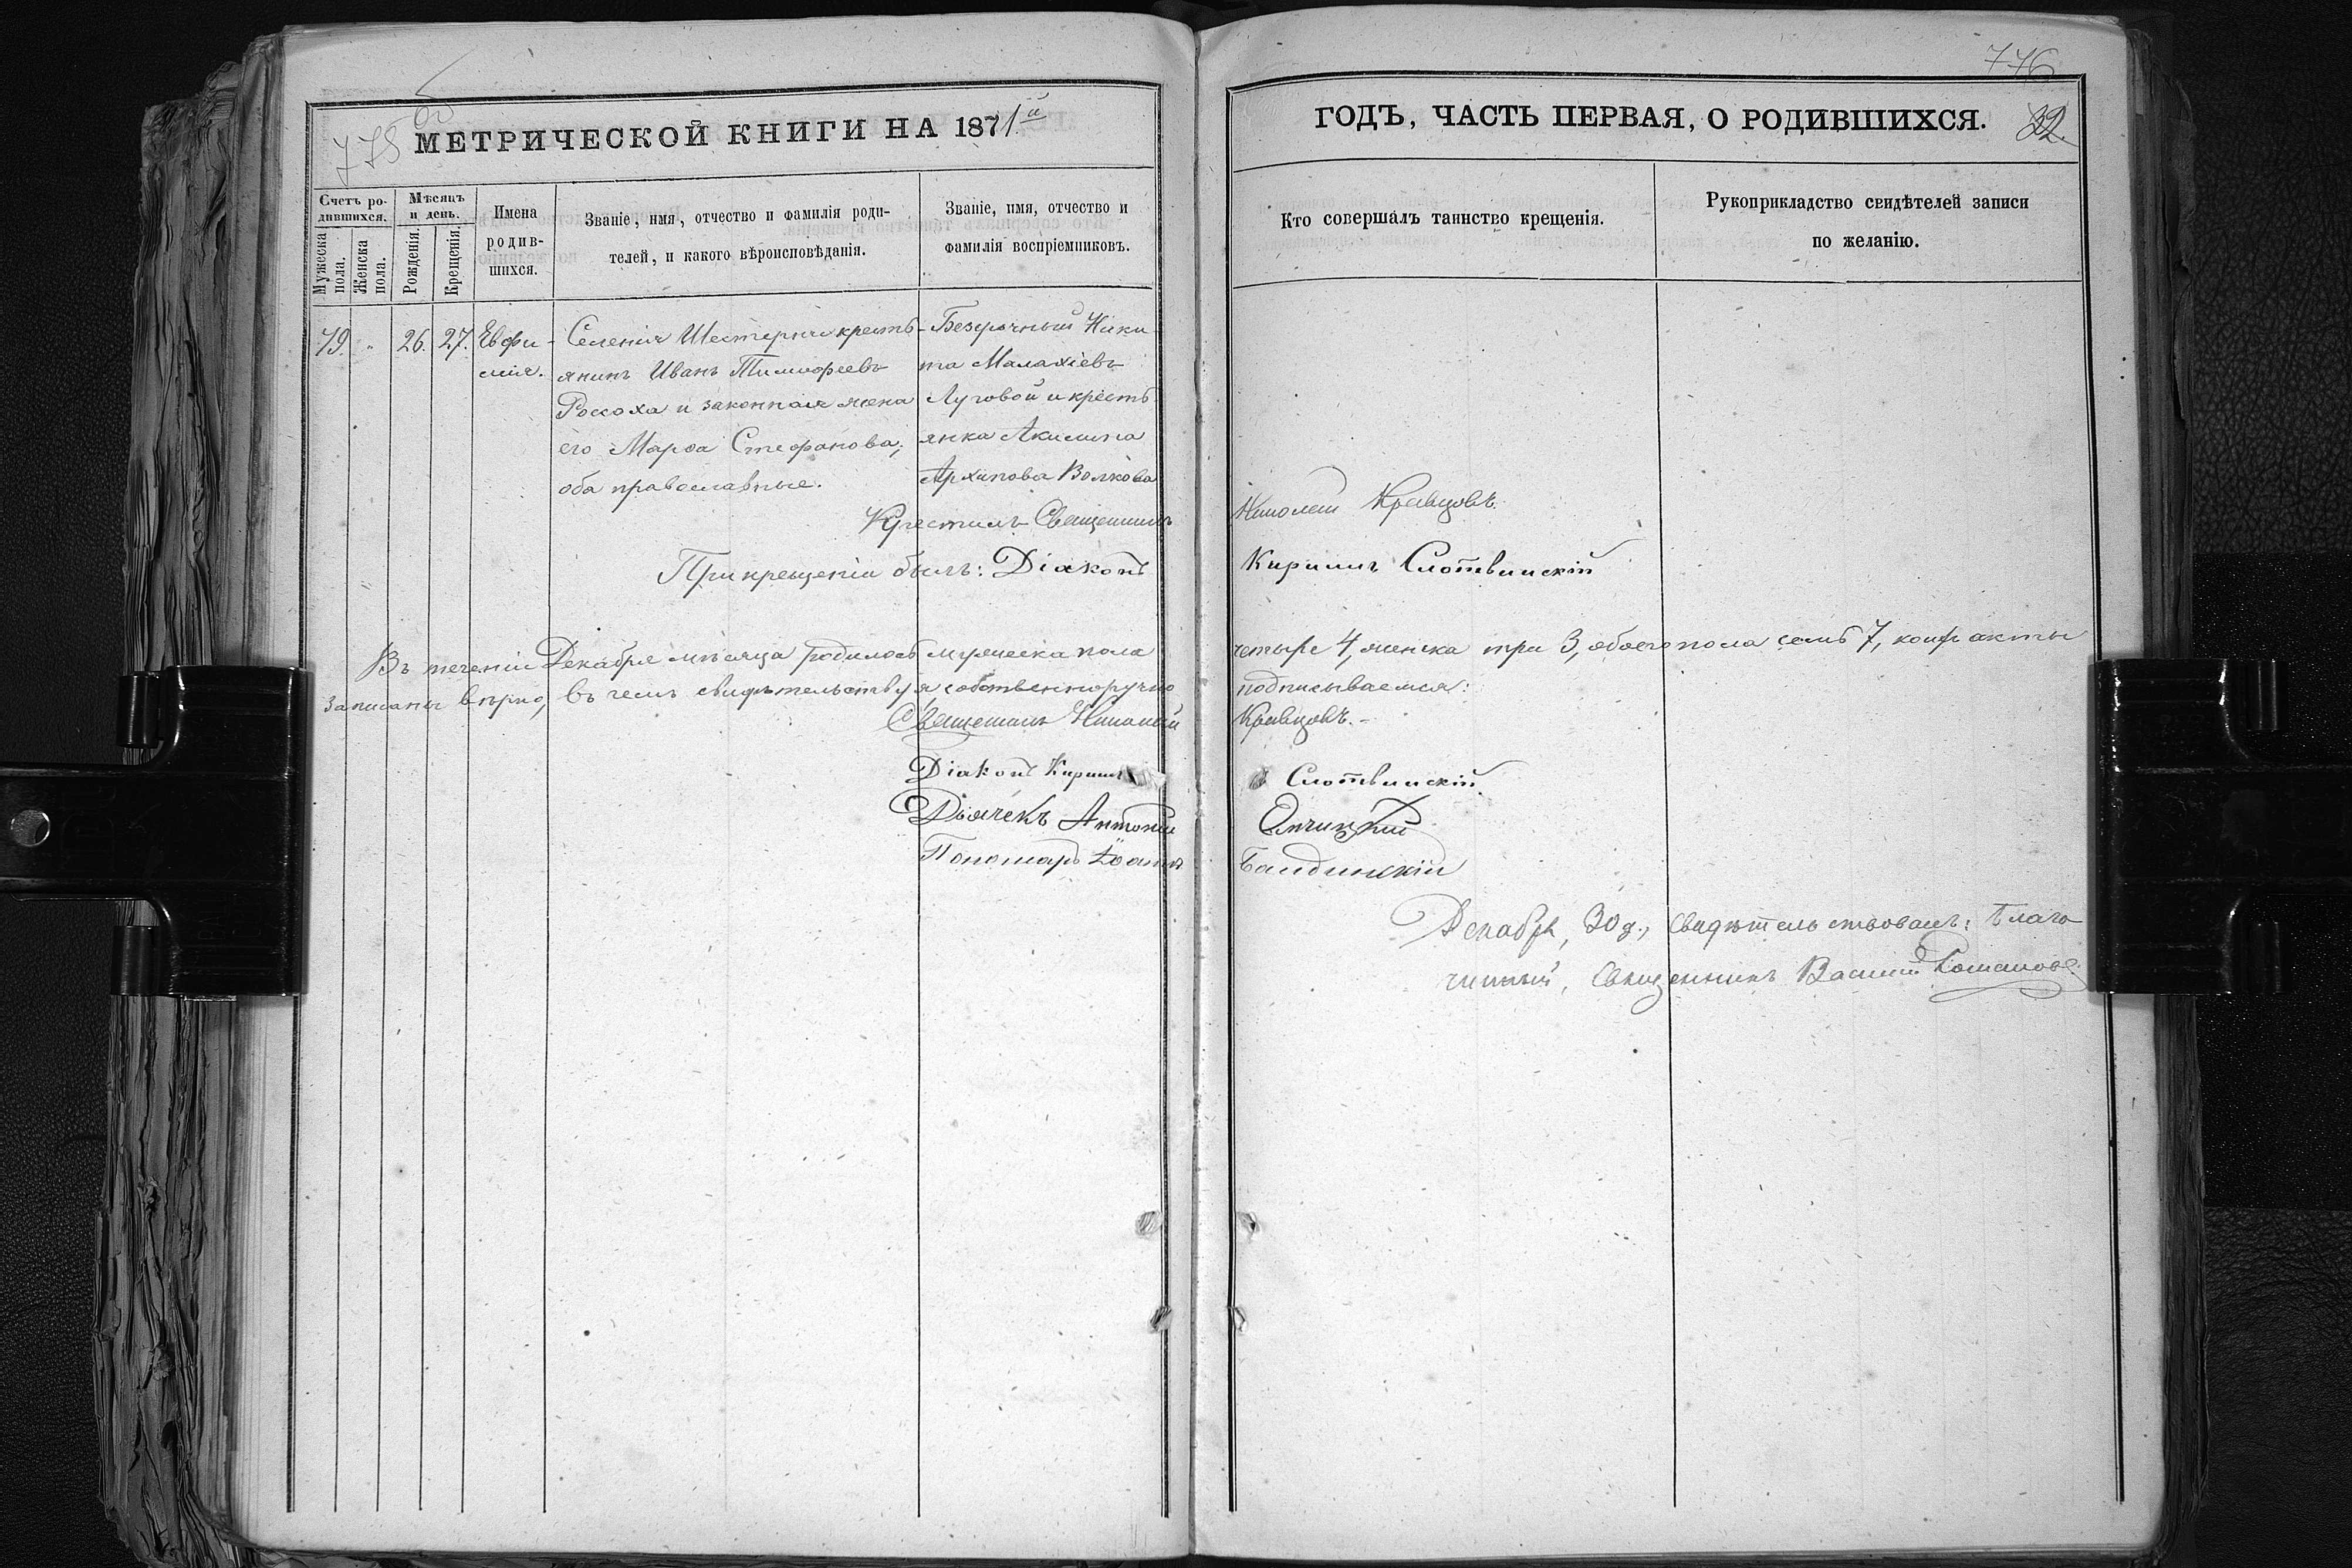 775 об
МЕТРИЧЕСКОЙ КНИГИ НА 1871й
Счетъ ро-
дившихся.
Мужеска
пола.
Женска
пола.
Мѣсяцъ
и день.
Рожденія.
Крещенія.
Имена
родив-
шихся.
Званіе, имя, отчество и фамилія роди-
телей, и какого вѣроисповѣданія.
Званіе, имя, отчество и
фамилія воспріемниковъ.
79. " 26. 27. Евфи-
мія.
Селенія Шестерни кресть-
янинъ Иванъ Тимофеевъ
Россоха и законная жена
его Марѳа Стефанова,
оба православные.
Безсрочный Ники-
та Малахіевъ
Луговой и кресть
янка Акилина
Архипова Волкова
Крестилъ Священникъ
При крещеніи былъ: Діаконъ
Въ теченіи Декабря мѣсяца родилось мужеска пола
записаны вѣрно, въ чемъ свидѣтельствуя собственноручно
Священникъ Николай
Діаконъ Кириллъ
Дьячекъ Антоній
Пономарь Іоаннъ
776
ГОДЪ, ЧАСТЬ ПЕРВАЯ, О РОДИВШИХСЯ.
32.
Кто совершалъ таинство крещенія.
Рукоприкладство свидѣтелей записи
по желанію.
Николай Кравцовъ.
Кириллъ Слотвинскій
четыре 4, женска три 3, обоего пола семь 7, акты
подписываемся:
Кравцовъ.-
Слотвинскій.
Бандинскій
Декабря, 30 д., свидѣтельствовалъ: Благо
чинный, Священникъ Василій Романовъ